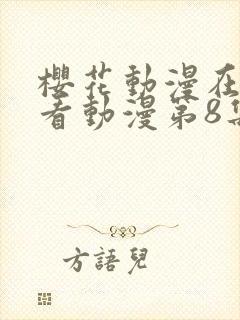 櫻花動漫在
看動漫第8集
方語兒